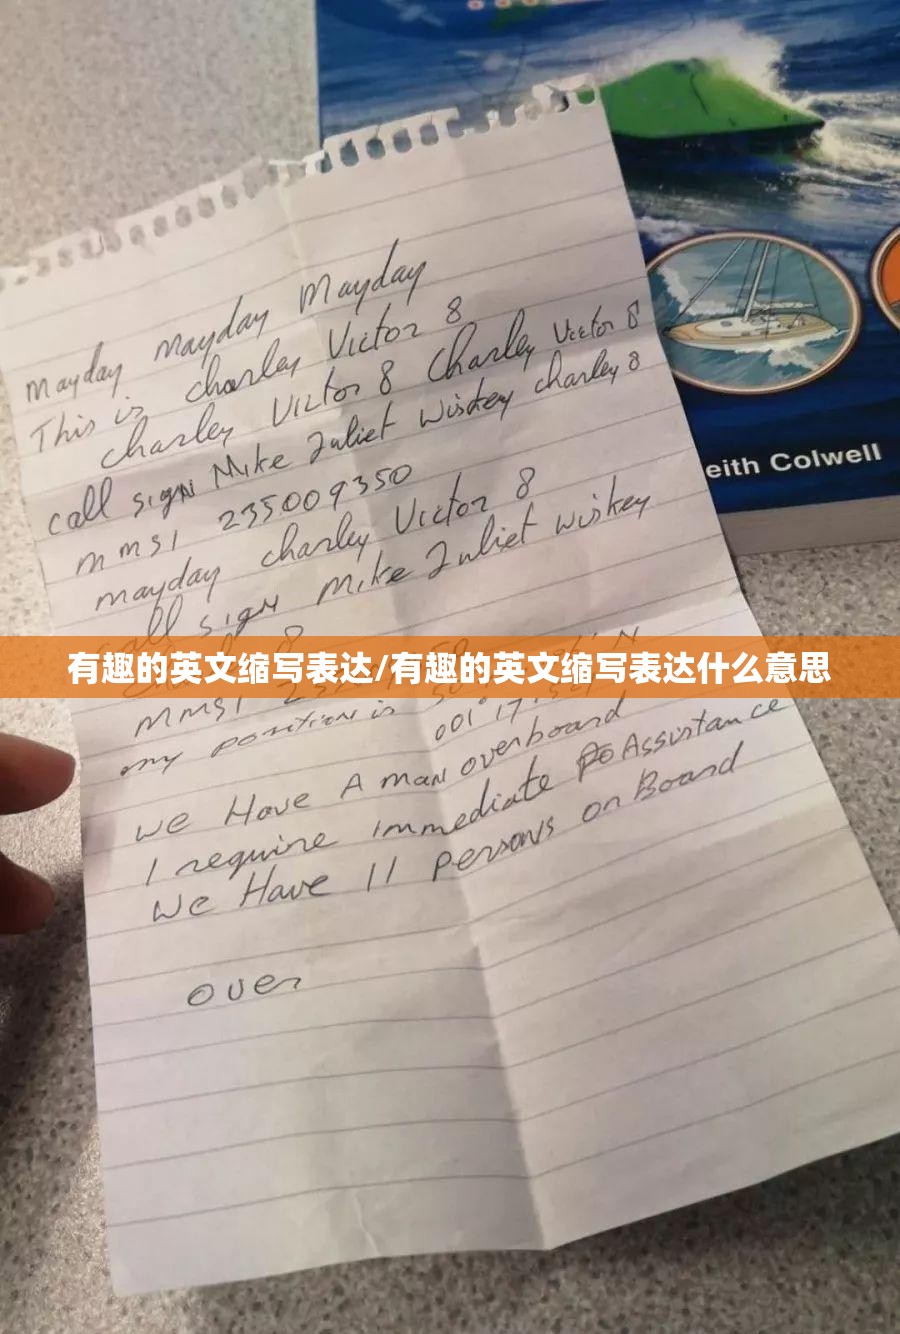 mayday mayday mayday
This is charley Victor 8
charley Victor 8 Charley Victor 8
call sign Mike Juliet wiskey charley 8
mmsi 235009350
mayday charley Victor 8
call sign mike Juliet wiskey
8
有趣的英文缩写表达/有趣的英文缩写表达什么意思
mmsi
my position is
001° 17.
we Have A man overboard
I require immediate Assistance
we Have 11 Persons on Board
over
eith Colwell